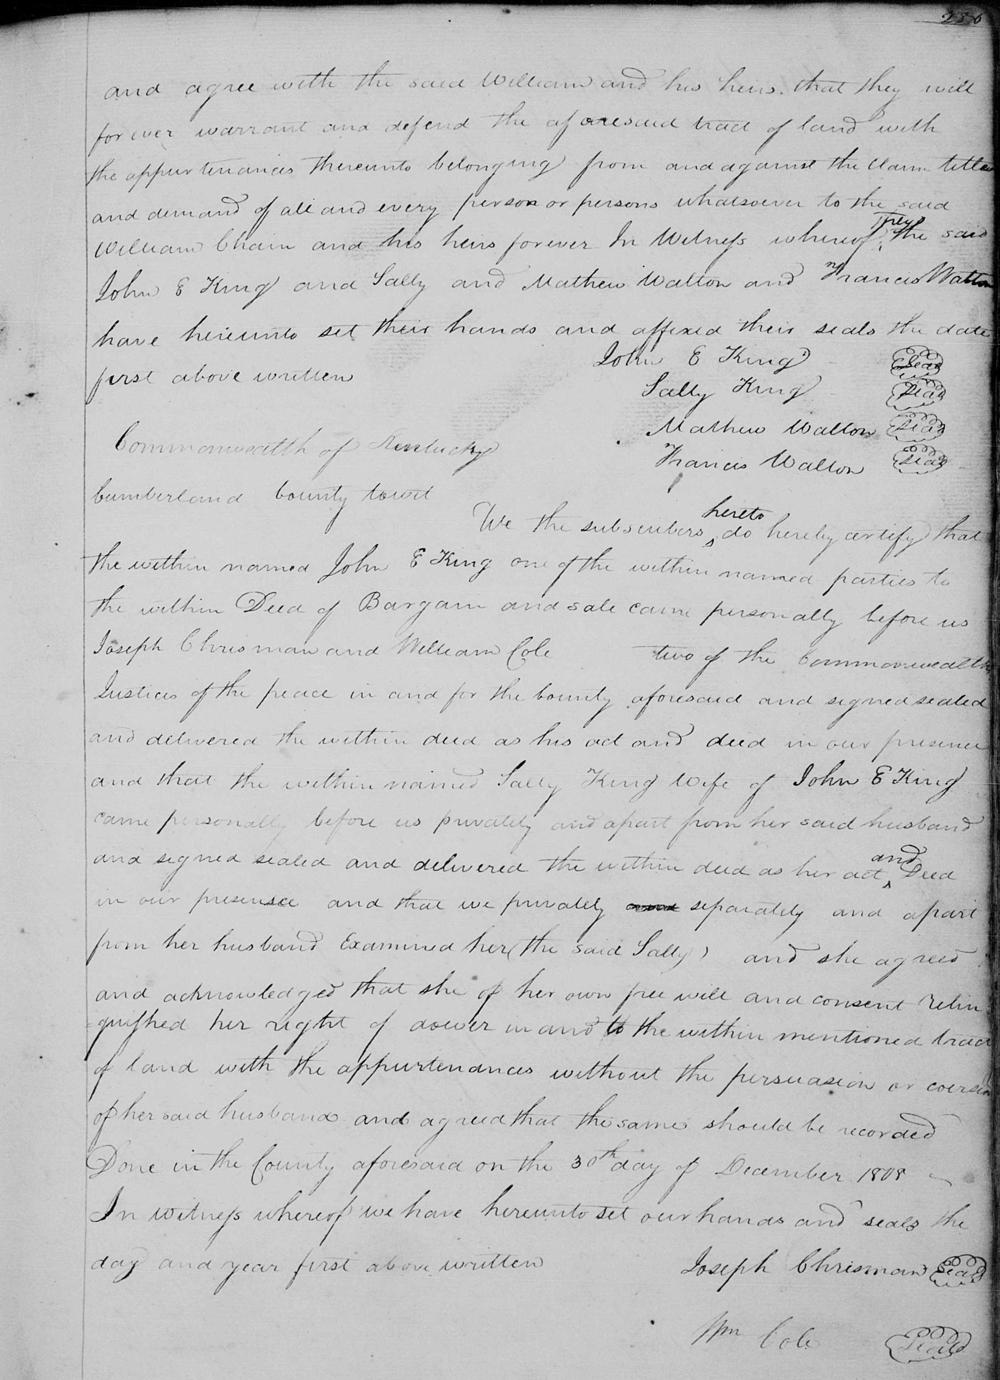 and agree with the said William and his heirs that they will
forever warrant and defend the aforesaid tract of land with
the appurtenances thereunto belonging from and against the claim title
and demand of all and every person or persons whatsoever to the said
William Chain and his heirs forever In Witness whereof they the said
John E King and Sally and Mathew Walton and Francis Walton
have hereunto set their hands and affixed their seals the date
first above written
John E King Seal
Sally King Seal
Mathew Walton Seal
Francis Walton Seal
Commonwealth of Kentucky
Cumberland County towit
We the subscribers hereto do hereby certify that
the within named John E King one of the within named parties to
the within Deed of Bargain and sale came personally before us
Joseph Chrisman and William Cole two of the Commonwealth
Justices of the peace in and for the County aforesaid and signed sealed
and delivered the within deed as his act and deed in our presence
and that the within named Sally King Wife of John E King
came personally before us privately and apart from her said husband
and signed sealed and delivered the within deed as her act and Deed
in our presence and that we privately separately and apart
from her husband Examined her (the said Sally) and she agreed
and acknowledged that she of her own free will and consent relin
quished her right of dower in and to the within mentioned tract
of land with the appurtenances without the persuasion or coersion
of her said husband and agreed that the same should be recorded
Done in the County aforesaid on the 30th day of December 1808
In witness whereof we have hereunto set our hands and seals the
day and year first above written
Joseph Chrisman Seal
Wm Cole Seal